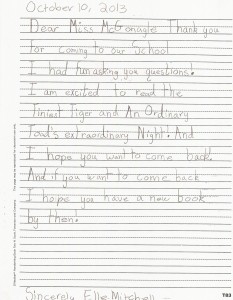 October 10, 2013
Dear Miss McGonagle Thank you
for coming to our School
I had fun asking you questions!
I am excited to read the
Tiniest Tiger and An Ordinary
Toad's extraordinary Night! And
I hope you want to come back!
And if you want to come back
I hope you have a new book
by then!
Sincerely Elle Mitchell
T83